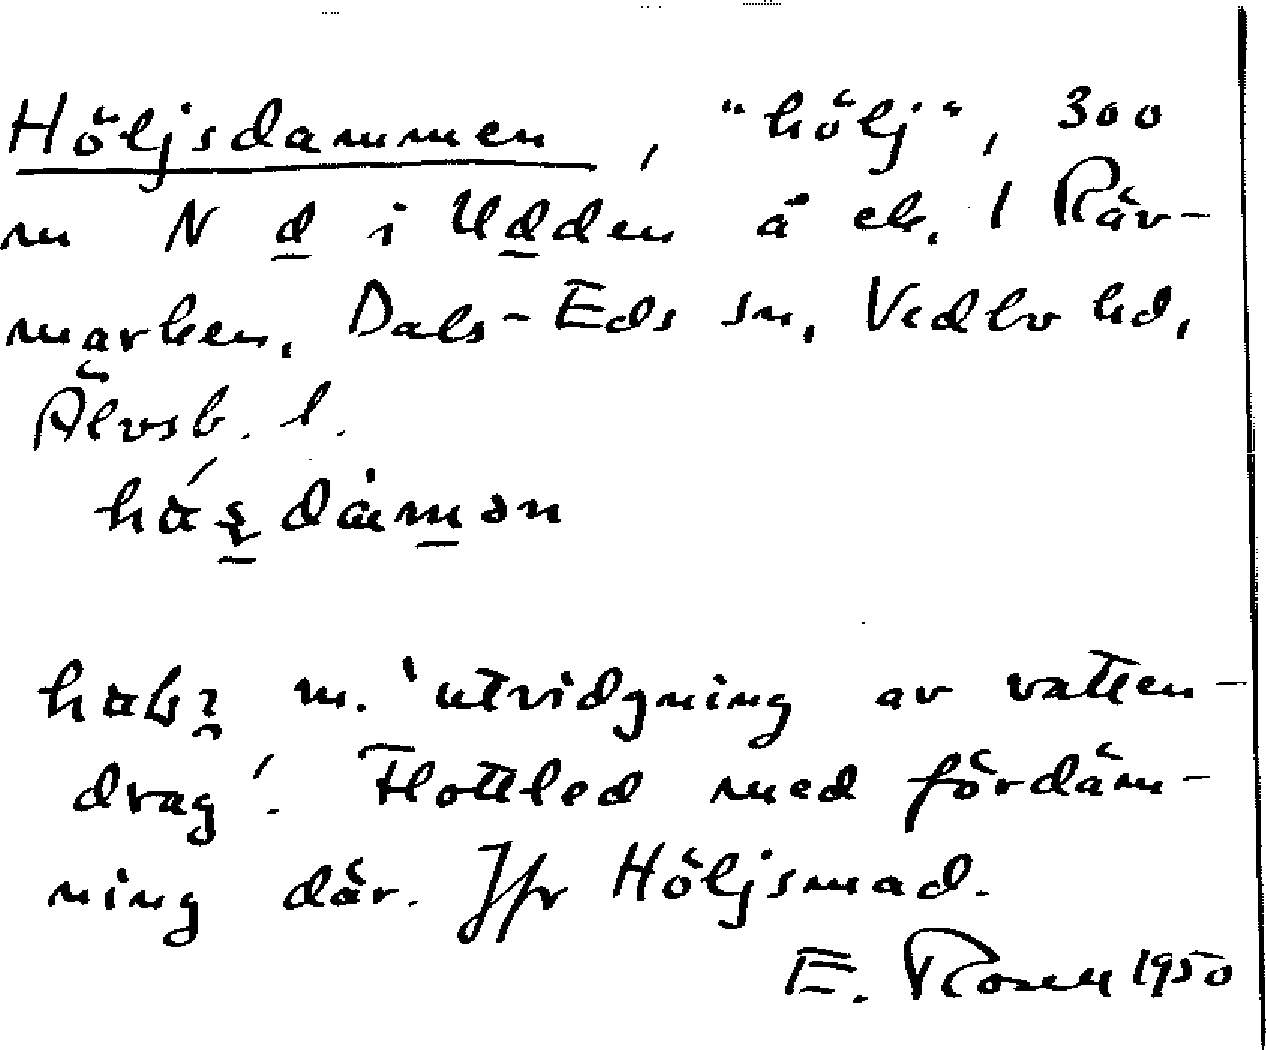 Höljsdammen, "hölj", 300
m N d i Udden å ek. 1 Räv-
marken, Dals-Eds sn, Vedbo hd,
Älvsb. l.
m. 'utvidgning av vatten-
drag'. Flottled med fördäm-
ning där. Jfr Höljsmad.
E. Rosell 1950